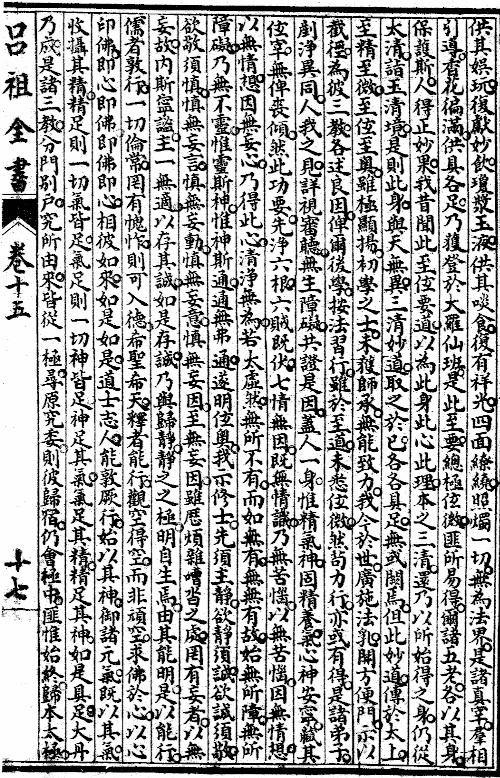 供其娛玩復獻妙飲瓊漿玉液供其啖食復有祥光四面繚繞照燭一切無為法界是諸真宰羣相
引導香花徧滿供具各足乃獲登於大羅仙班是此至要總極位微匪所易得爾諸五老各以其身
保護斯人得正妙果我昔聞此至位要道以為此身此心此理本之三清還乃以所始得之身仍從
太清諸玉清境是則此身與天無異三清妙道取之於己各各具足無或闕焉但此妙道傳於太上
至精至微至位至奧雖極顯揚初學之士未獲師承無能致力我今於世廣施法乳開方便門示以
截徑為彼三教各述良因俾爾後學按法習行雖於至道未悉位微然苟力行亦或有得是諸弟子
劃淨異同人我之見詳視審聽無生障礙共證是因蓋人一身惟精氣神因精養氣心神安寧藏其
位宰無俾喪傾然此功要先淨六根六賊既伏七情無因既無情識乃無苦惱以無苦惱因無情想
以無情想因無妄心乃得此心清淨無為若太虛然無所不有而如無有無無有故始無所障無所
障礙乃無不靈惟靈斯神惟神斯通通無弗通遂明位奧我示修士先須主靜欲靜須誠欲誠須敬
欲敬須慎慎無妄言慎無妄動慎無妄意慎無妄因主無妄因雖歷煩雜嘈呰之處罔有妄者以無
妄故內斯寧謐主一無適以存其誠如是存誠乃與歸靜靜之之極明自生焉由其能明是以能行
儒者敦行一切倫常罔有愧怍則可入德希聖希天釋者能行觀空得空而非頑空求佛於心以心
印佛即心即佛即佛即心相彼如來如是如是道士志人能敦厥行始以其神御諸元氣既以其氣
收攝其精精足則一切氣皆足氣足則一切神皆足神足其氣氣足其精精足其神如是具足大丹
乃成是諸三教分門別戶究所由來皆從一極尋原究委則彼歸宿仍會極中匪惟始終歸本太極
呂祖全書
卷十五
十七